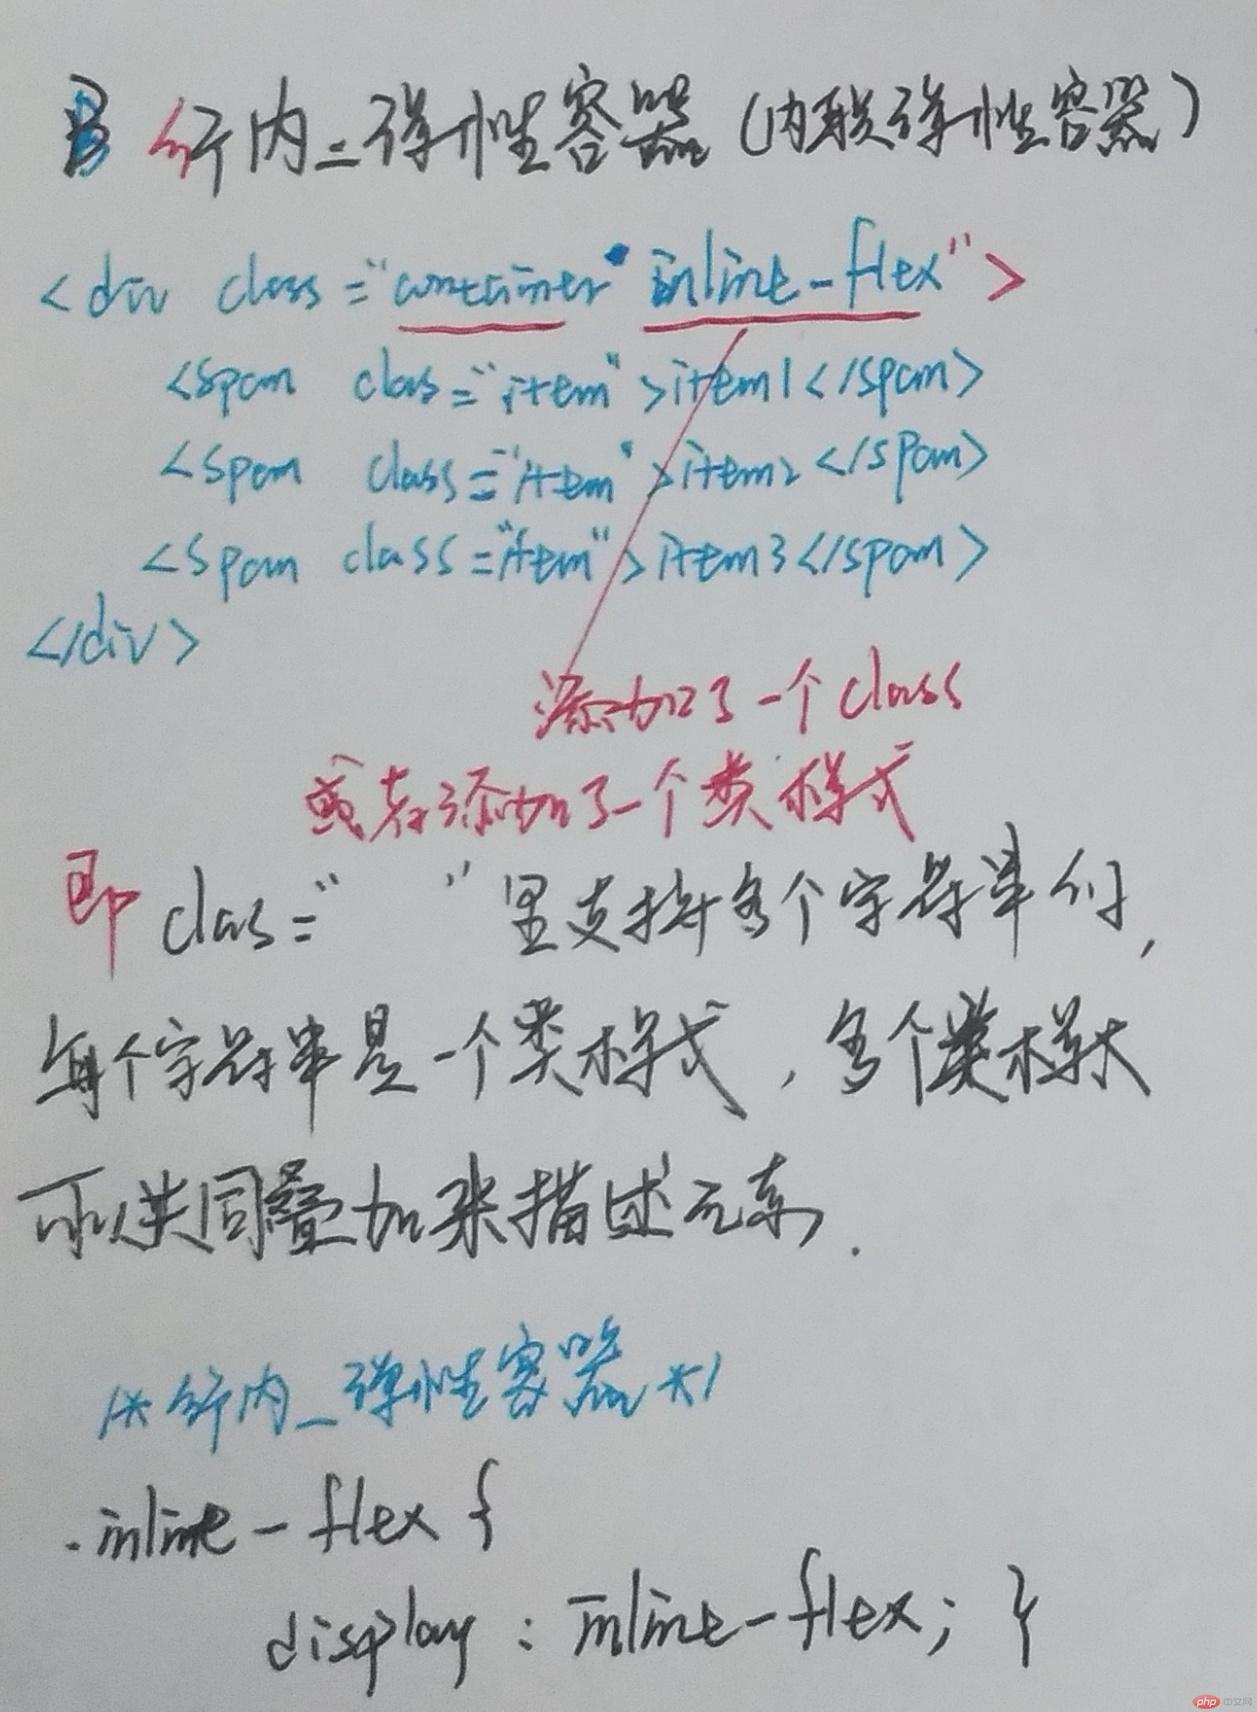 B 行内_弹性容器(内联弹性容器)
<div class="container inline-flex">
<span class="item">item1</span>
<span class="item">item2</span>
<span class="item">item3</span>
</div>
添加了一个class
或者添加了一个类样式
即 class=" "里支持多个字符串们,
每个字符串是一个类样式,多个类样式
可以共同叠加来描述元素.
/* 行内_弹性容器 */
.inline-flex {
display : inline-flex; }
php 中文网